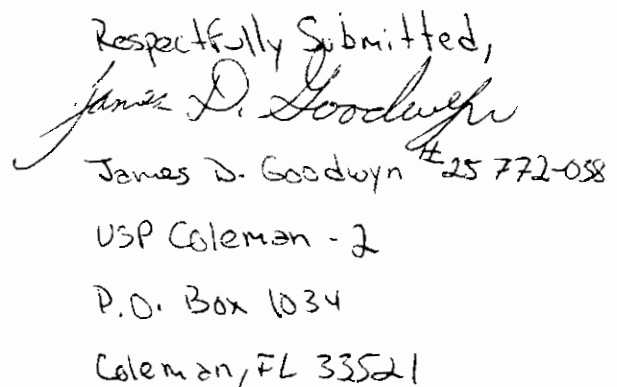 Respectfully Submitted,
James D. Goodwyn
James D. Goodwyn #25772-058
USP Coleman - 2
P.O. Box 1034
Coleman, FL 33521